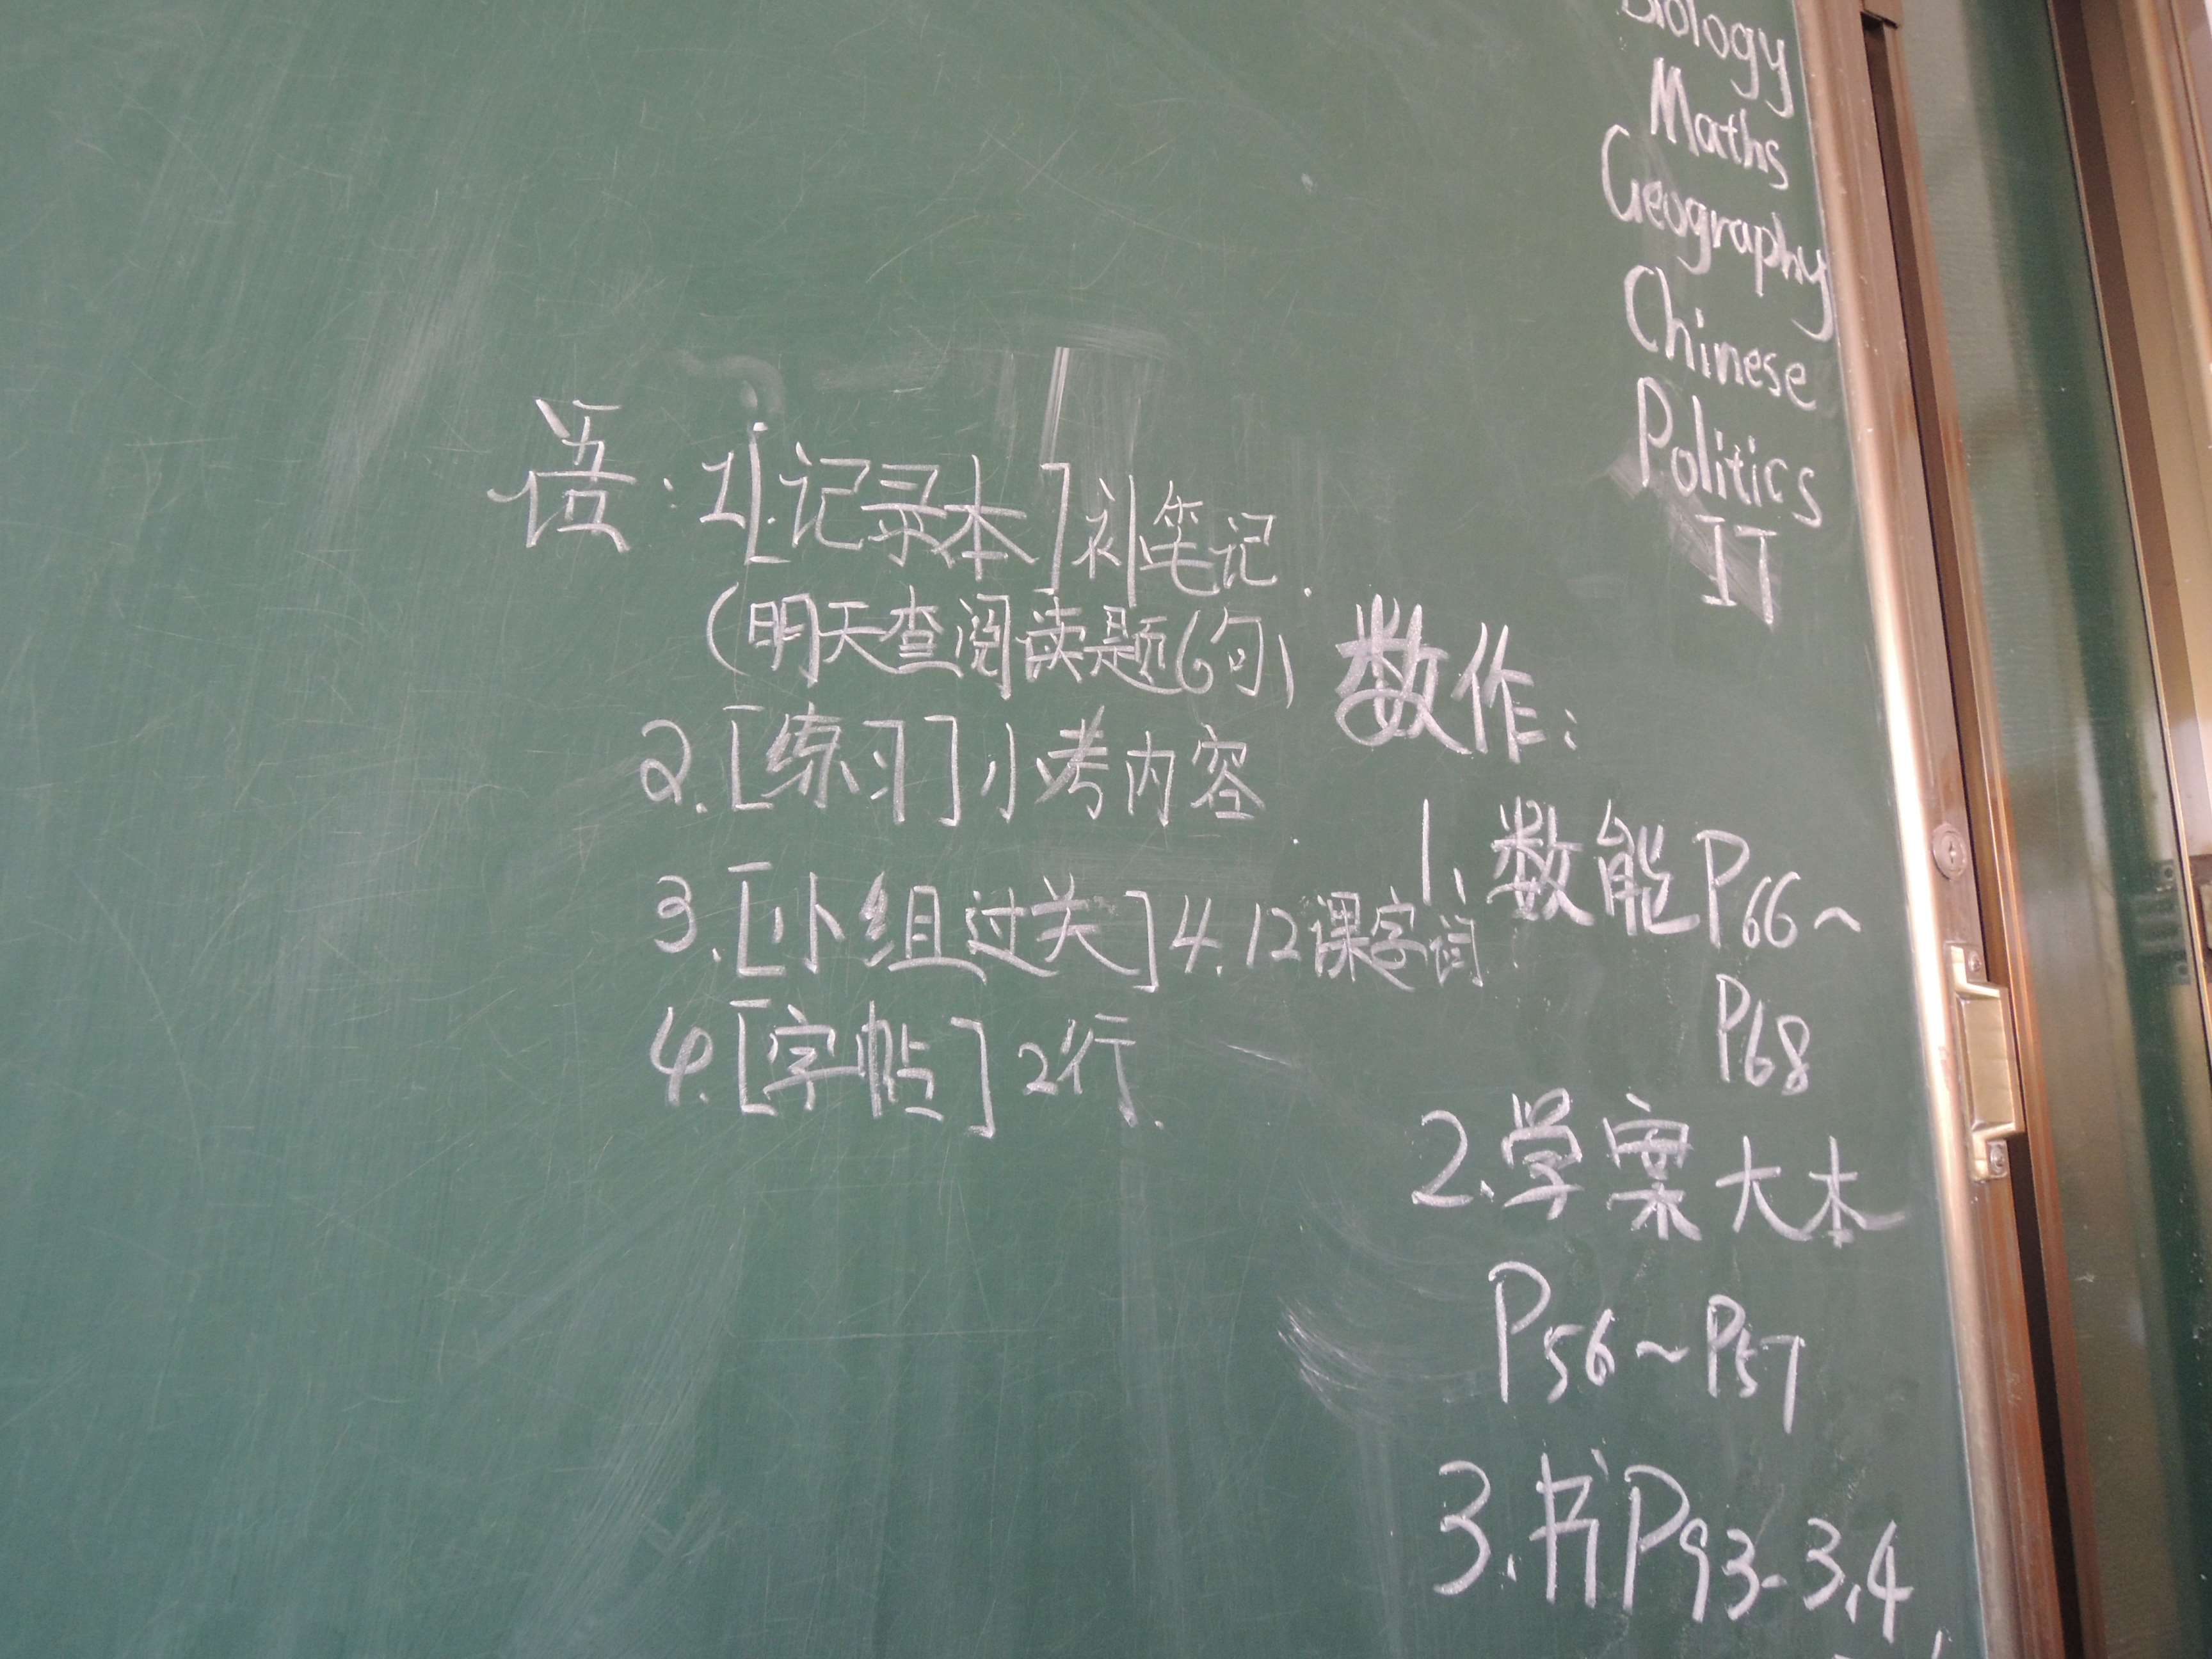 Biology
Maths
Geography
Chinese
Politics
IT
语:1.[记录本]补笔记.
(明天查阅读题6句)
2.[练习]小考内容.
3.[小组过关]4.12课字词.
4.[字帖]2行.
数作:
1、数能P66~
P68
2.学案大本
P56~P57
3.书P93-3,4,